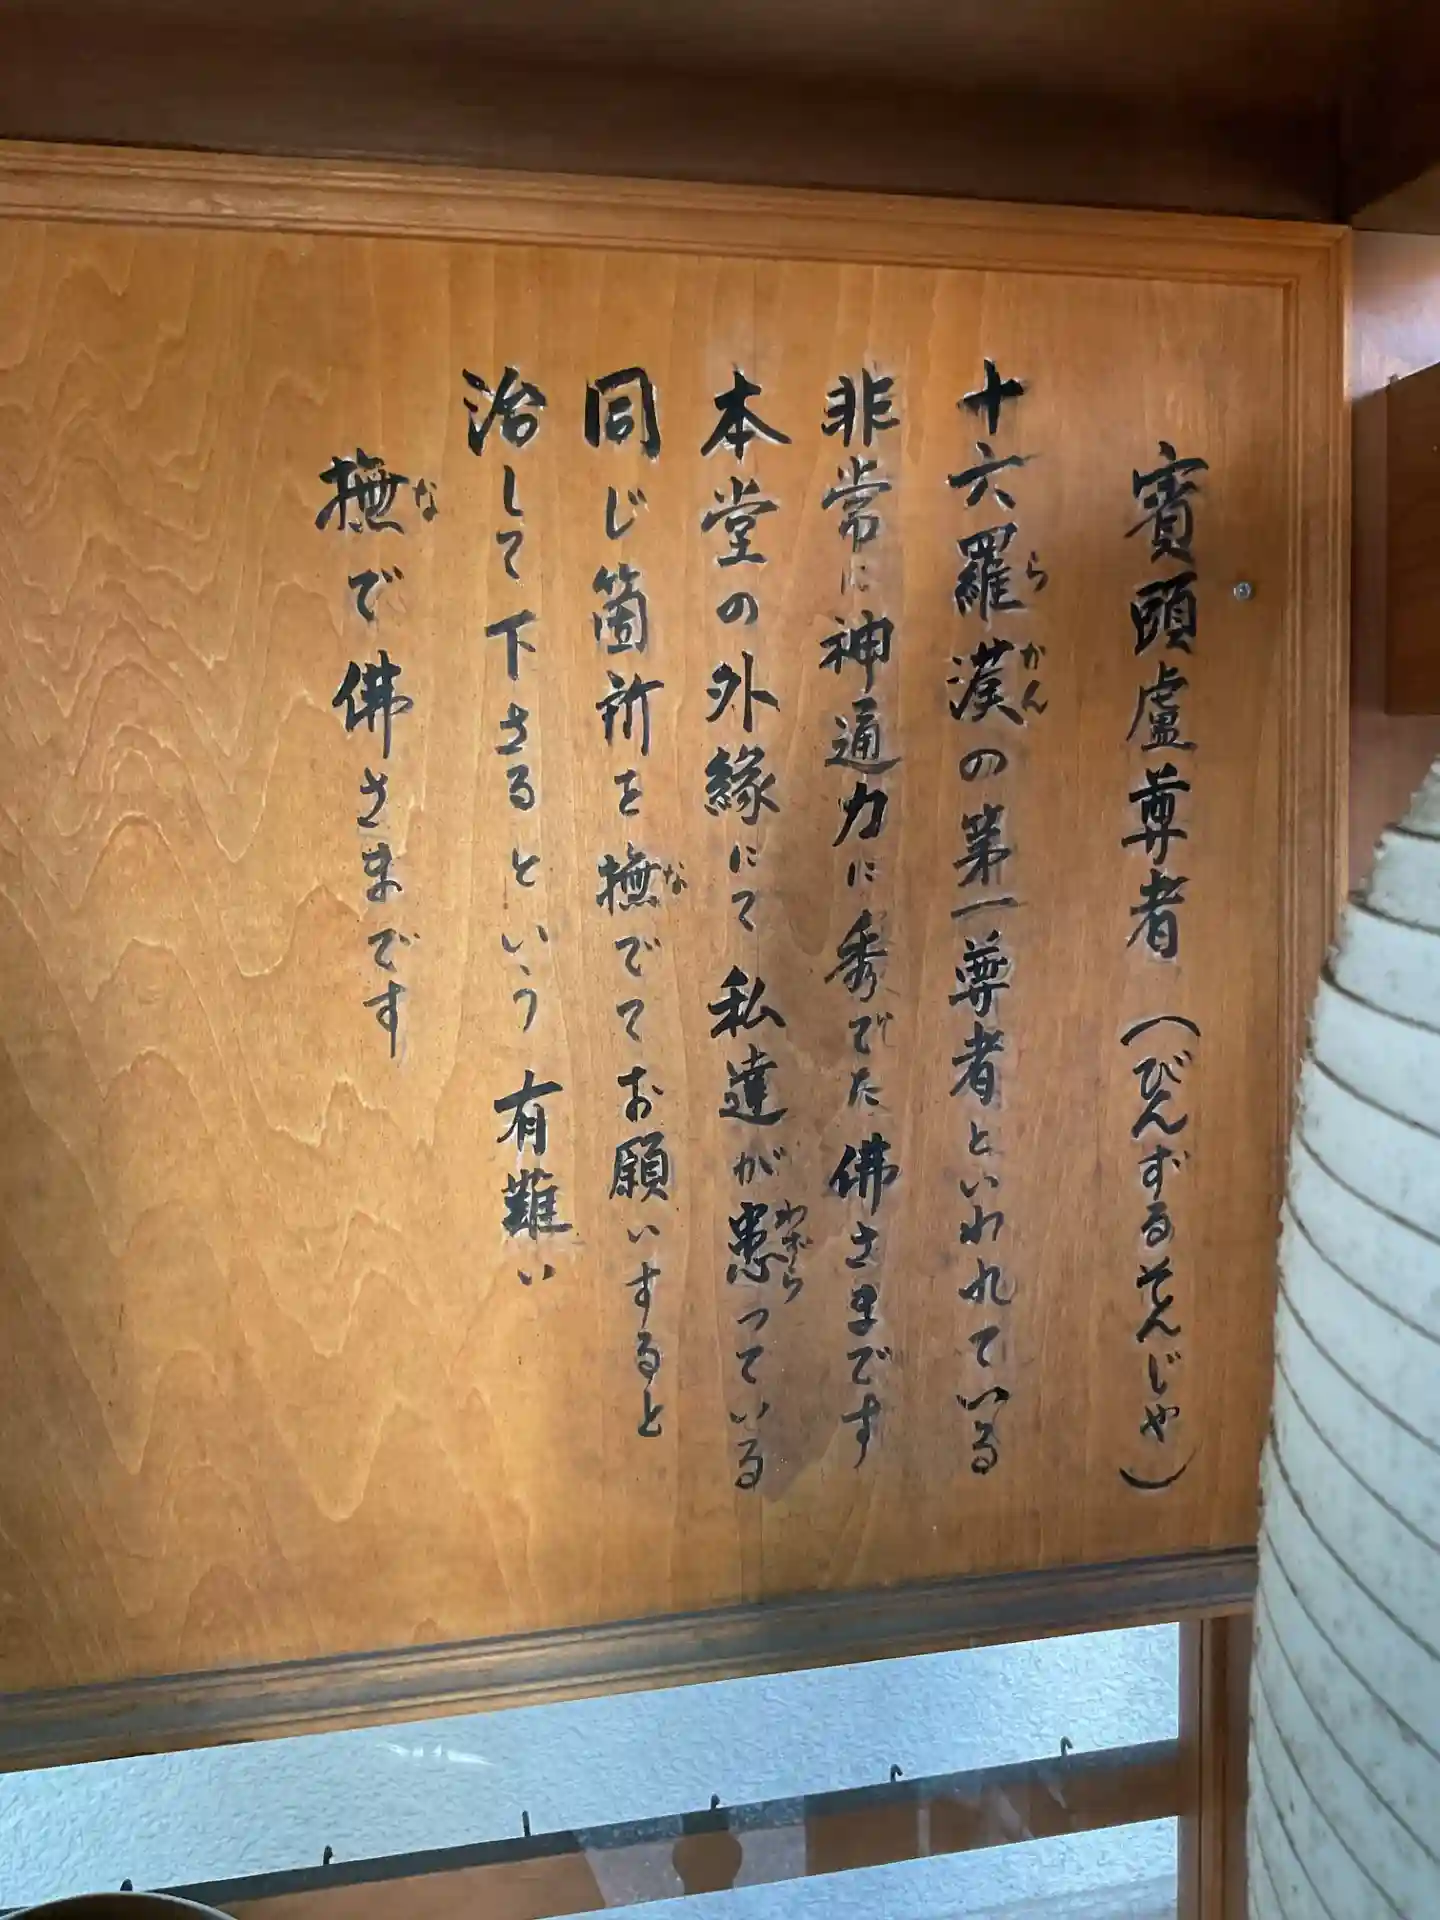 賓頭盧尊者（びんずるそんじゃ）
十六羅漢の第一尊者といわれている
非常に神通力に秀でた佛さまです
本堂の外縁にて私達が患っている
同じ箇所を撫でてお願いすると
治して下さるという有難い
撫で佛さまです